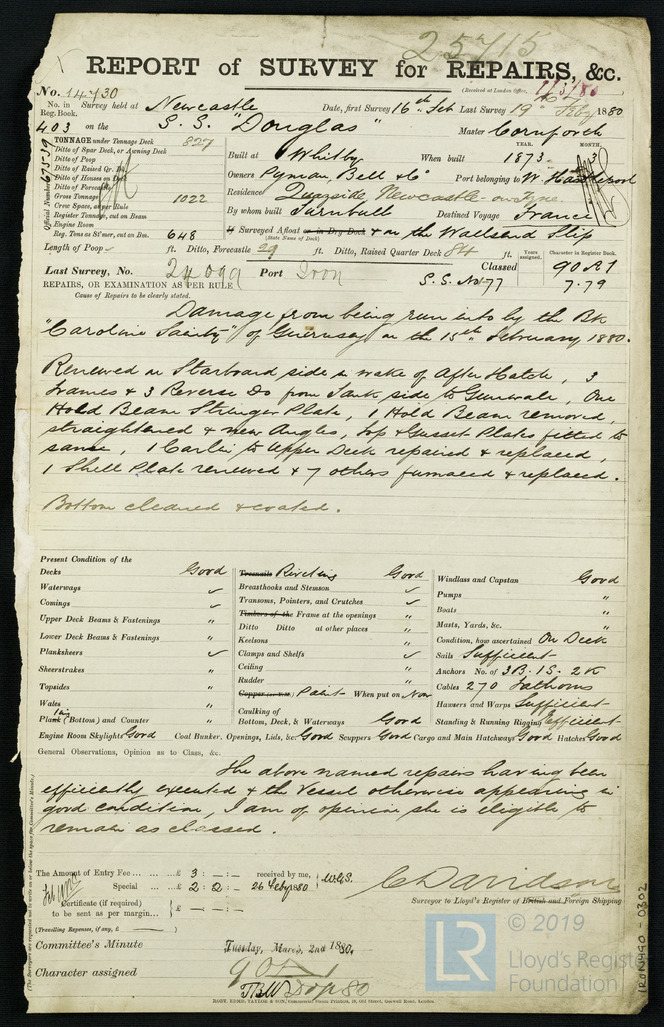 25715
REPORT of SURVEY for REPAIRS, &c.
(Received at London Office, 1/3/80
No. 14730
No. in Survey held at Newcastle Date, first Survey 16th Feb Last Survey 19th Feby 1880
Reg. Book.
403 on the S. S. "Douglas" Master Cornforth
TONNAGE under Tonnage Deck 827
Ditto of Spar Deck, or Awning Deck
Ditto of Poop
Ditto of Raised Qr. Dk.
Ditto of Houses on Deck
Ditto of Forecastle
Gross Tonnage 1022
Crew Space, as per Rule
Register Tonnage, cut on Beam
Engine Room
Reg. Tons as St'mer, cut on Bm. 648
Official Number 67519
YEAR. MONTH.
Built at Whitby When built 1873. 3
Owners Pyman, Bell & Co Port belonging to W. Hartlepool
Residence Quayside, Newcastle-on-Tyne.
By whom built Turnbull Destined Voyage France
If Surveyed Afloat or in Dry Dock & on the Wallsend Slip
(State Name of Dock)
Length of Poop ft. Ditto, Forecastle 29 ft. Ditto, Raised Quarter Deck 84 ft.
Years assigned. Character in Register Book.
Last Survey, No. 24099 Port Iron Classed 90 A1
S. S. No 1-77 7.79
REPAIRS, OR EXAMINATION AS PER RULE
Cause of Repairs to be clearly stated.
Damage from being run into by the Bk
"Caroline " of Guernsey on the 15th February 1880.
Renewed on Starboard side in wake of After Hatch, 3
Frames & 3 Reverse Do from Tank side to Gunwale, One
Hold Beam Stringer Plate, 1 Hold Beam removed,
straightened & new Angles, top & Gusset Plates fitted to
same, 1 Carlin to Upper Deck repaired & replaced,
1 Shell Plate renewed & 7 others furnaced & replaced.
Bottom cleaned & coated.
Present Condition of the
Decks Good
Waterways ✓
Comings ✓
Upper Deck Beams & Fastenings "
Lower Deck Beams & Fastenings "
Planksheers ✓
Sheerstrakes "
Topsides "
Wales "
Plank (Bottom) and Counter "
Treenails Riveting Good
Breasthooks and Stemson ✓
Transoms, Pointers, and Crutches ✓
Timbers of the Frame at the openings "
Ditto Ditto at other places "
Keelsons "
Clamps and Shelfs ✓
Ceiling "
Rudder "
Copper Paint When put on Now
Caulking of
Bottom, Deck, & Waterways Good
Windlass and Capstan Good
Pumps "
Boats "
Masts, Yards, &c. "
Condition, how ascertained On Deck
Sails Sufficient
Anchors No. of 3B. 1S. 2K
Cables 270 Fathoms
Hawsers and Warps Sufficient
Standing & Running Rigging Efficient
Engine Room Skylights Good Coal Bunker. Openings, Lids, &c. Good Scuppers Good Cargo and Main Hatchways Good Hatches Good
General Observations, Opinion as to Class, &c.
The above named repairs having been
efficiently executed & the Vessel otherwise appearing in
good condition, I am of opinion she is eligible to
remain as classed.
(The Surveyors are requested not to write on or below the space for Committee's Minute.)
The Amount of Entry Fee ... ... £ 3 : - : - received by me, W.G.S.
Special ... ... £ 2 : 2 : - 26 Feby 1880
Certificate (if required)
to be sent as per margin... } £ - : - : -
(Travelling Expenses, if any, £ )
C Davidson
Surveyor to Lloyd's Register of British and Foreign Shipping
Committee's Minute Tuesday, March 2nd 1880.
Character assigned 90 A1
IRON490-0302
LR
© 2019
Lloyd's Register
Foundation